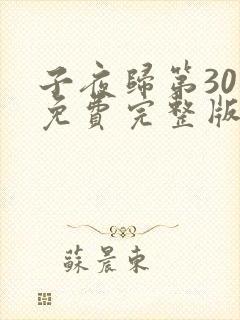 子夜歸第30
免費完整版
蘇晨東